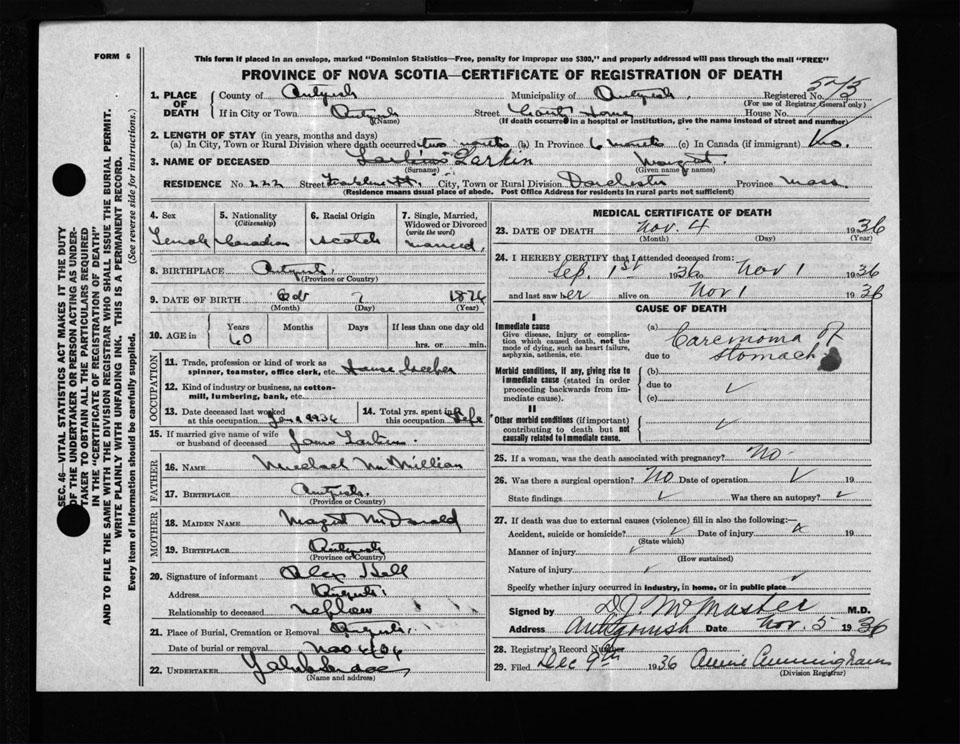 FORM 6
This form if placed in an envelope, marked "Dominion Statistics—Free, penalty for improper use $300," and properly addressed will pass through the mail "FREE"
PROVINCE OF NOVA SCOTIA—CERTIFICATE OF REGISTRATION OF DEATH
SEC. 46—VITAL STATISTICS ACT MAKES IT THE DUTY
OF THE UNDERTAKER OR PERSON ACTING AS UNDER-
TAKER TO OBTAIN ALL THE PARTICULARS REQUIRED
IN THE "CERTIFICATE OF REGISTRATION OF DEATH"
AND TO FILE THE SAME WITH THE DIVISION REGISTRAR WHO SHALL ISSUE THE BURIAL PERMIT.
WRITE PLAINLY WITH UNFADING INK. THIS IS A PERMANENT RECORD.
Every item of Information should be carefully supplied. (See reverse side for instructions.)
1. PLACE OF DEATH County of Antigonish Municipality of Antigonish Registered No.
(For use of Registrar General only)
If in City or Town Antigonish (Name) Street County Home House No.
(If death occurred in a hospital or institution, give the name instead of street and number)
2. LENGTH OF STAY (in years, months and days)
(a) In City, Town or Rural Division where death occurred two months (b) In Province 6 months (c) In Canada (if immigrant)
3. NAME OF DECEASED Larkin Margaret
(Surname) (Given name or names)
RESIDENCE No. 222 Street Franklin St. City, Town or Rural Division Dorchester Province Mass
(Residence means usual place of abode. Post Office Address for residents in rural parts not sufficient)
4. Sex Female
5. Nationality (Citizenship) Canadian
6. Racial Origin Scotch
7. Single, Married, Widowed or Divorced (write the word) Married
8. BIRTHPLACE Antigonish
(Province or Country)
9. DATE OF BIRTH 7
(Month) (Day) (Year)
10. AGE in Years 60 Months Days If less than one day old hrs. or min.
OCCUPATION
11. Trade, profession or kind of work as spinner, teamster, office clerk, etc. House Keeper
12. Kind of industry or business, as cotton-mill, lumbering, bank, etc.
13. Date deceased last worked at this occupation 1936
14. Total yrs. spent in this occupation Life
15. If married give name of wife or husband of deceased James Larkin
FATHER
16. NAME Michael McMillian
17. BIRTHPLACE Antigonish
(Province or Country)
MOTHER
18. MAIDEN NAME Margaret McDonald
19. BIRTHPLACE Antigonish
(Province or Country)
20. Signature of informant Alex Hall
Address Antigonish
Relationship to deceased nephew
21. Place of Burial, Cremation or Removal Antigonish
Date of burial or removal
22. UNDERTAKER
(Name and address)
MEDICAL CERTIFICATE OF DEATH
23. DATE OF DEATH Nov. 4 1936
(Month) (Day) (Year)
24. I HEREBY CERTIFY that I attended deceased from:
Sep. 1st 1936 to Nov 1 1936
and last saw her alive on Nov 1 1936
CAUSE OF DEATH
I
Immediate cause
Give disease, injury or complication which caused death, not the mode of dying, such as heart failure, asphyxia, asthenia, etc.
(a) Carcinoma of
due to stomach
Morbid conditions, if any, giving rise to immediate cause (stated in order proceeding backwards from immediate cause).
(b)
due to
(c)
II
Other morbid conditions (if important) contributing to death but not causally related to Immediate cause.
25. If a woman, was the death associated with pregnancy? No
26. Was there a surgical operation? No Date of operation
State findings Was there an autopsy?
27. If death was due to external causes (violence) fill in also the following:—
Accident, suicide or homicide? Date of injury 19
(State which)
Manner of injury
(How sustained)
Nature of injury
Specify whether injury occurred in industry, in home, or in public place
Signed by D.J. McMaster M.D.
Address Antigonish Date Nov. 5 1936
28. Registrar's Record Number
29. Filed Dec 9th 1936 Annie Cunningham
(Division Registrar)